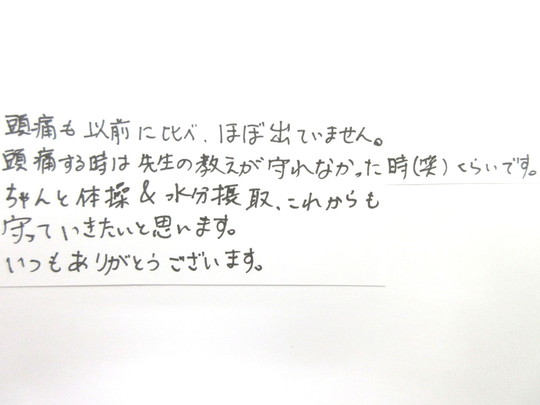 頭痛も以前に比べ、ほぼ出ていません。
頭痛する時は先生の教えが守れなかった時(笑)くらいです。
ちゃんと体操&水分摂取、これからも
守っていきたいと思います。
いつもありがとうございます。